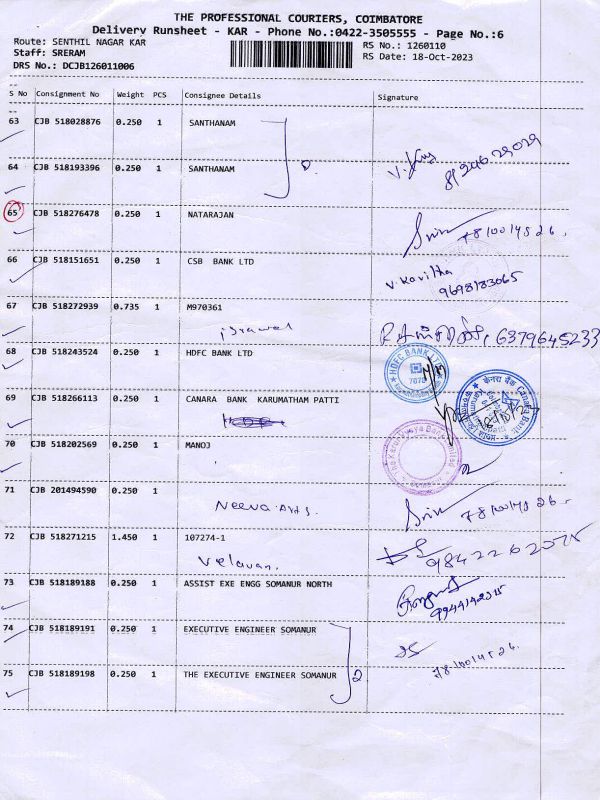 THE PROFESSIONAL COURIERS, COIMBATORE
Delivery Runsheet - KAR - Phone No.:0422-3505555 - Page No.:6
Route: SENTHIL NAGAR KAR
RS No.: 1260110
Staff: SRERAM
RS Date: 18-Oct-2023
DRS No.: DCJB126011006
S No Consignment No Weight PCS Consignee Details Signature
63 CJB 518028876 0.250 1 SANTHANAM
64 CJB 518193396 0.250 1 SANTHANAM
65 CJB 518276478 0.250 1 NATARAJAN
7810014526.
66 CJB 518151651 0.250 1 CSB BANK LTD V. Kavitha
9698183065
67 CJB 518272939 0.735 1 M970361
6379645233
68 CJB 518243524 0.250 1 HDFC BANK LTD HDFC BANK LTD
69 CJB 518266113 0.250 1 CANARA BANK KARUMATHAM PATTI
केनरा बैंक Canara Bank
70 CJB 518202569 0.250 1 MANOJ
71 CJB 201494590 0.250 1
7810014526.
72 CJB 518271215 1.450 1 107274-1
Velavan.
73 CJB 518189188 0.250 1 ASSIST EXE ENGG SOMANUR NORTH
74 CJB 518189191 0.250 1 EXECUTIVE ENGINEER SOMANUR
2
7810014526.
75 CJB 518189198 0.250 1 THE EXECUTIVE ENGINEER SOMANUR